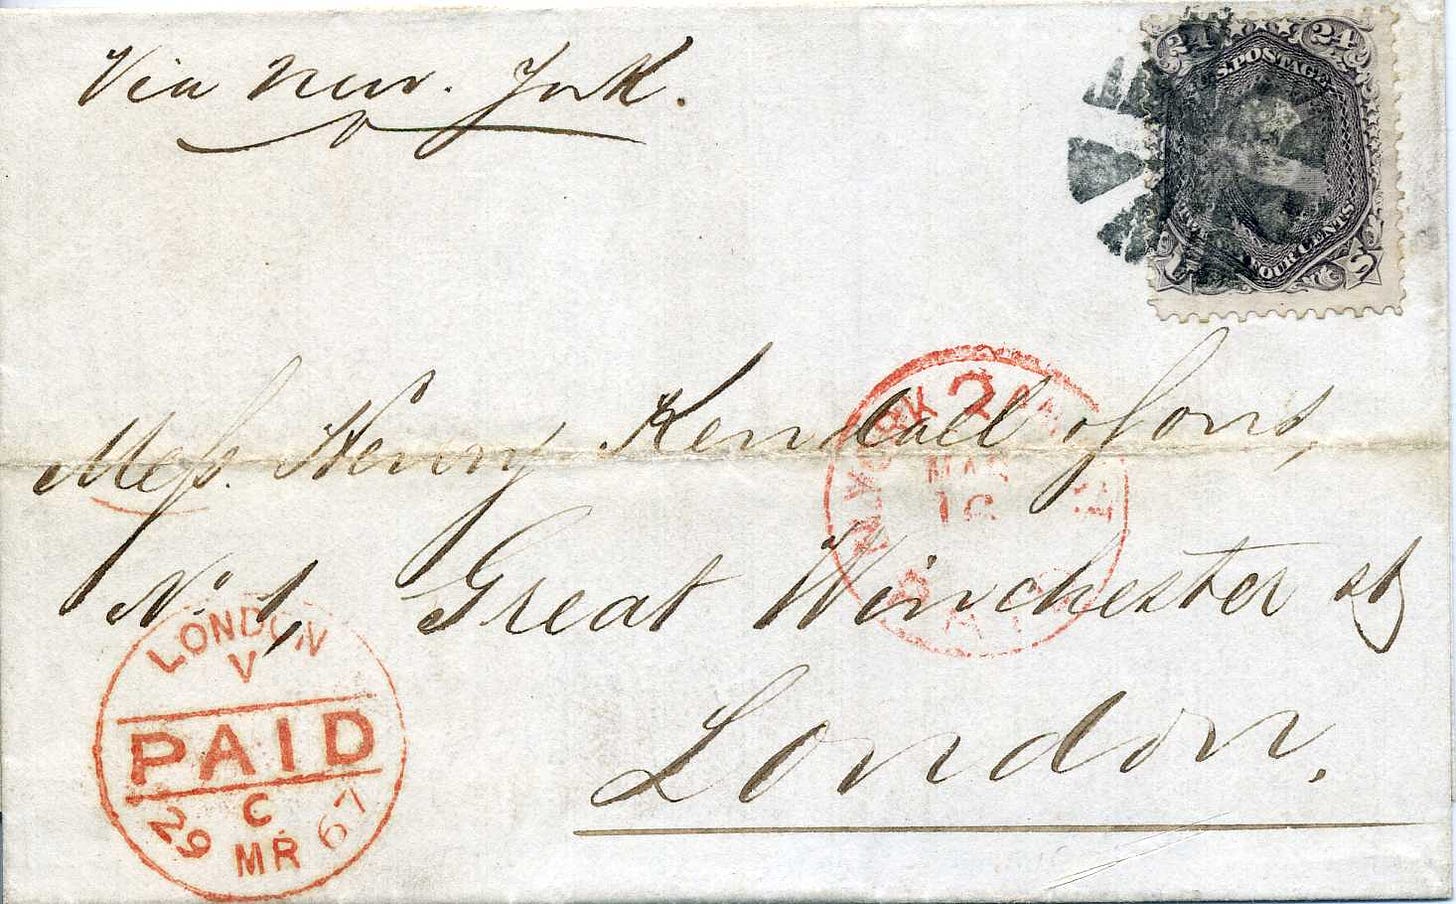 Via New York.
24 24
U.S. POSTAGE
FOUR CENTS
Mess. Henry Kendall & Sons,
No. 1, Great Winchester st
London.
2
MAR
LONDON
V
PAID
C
29 MR 67